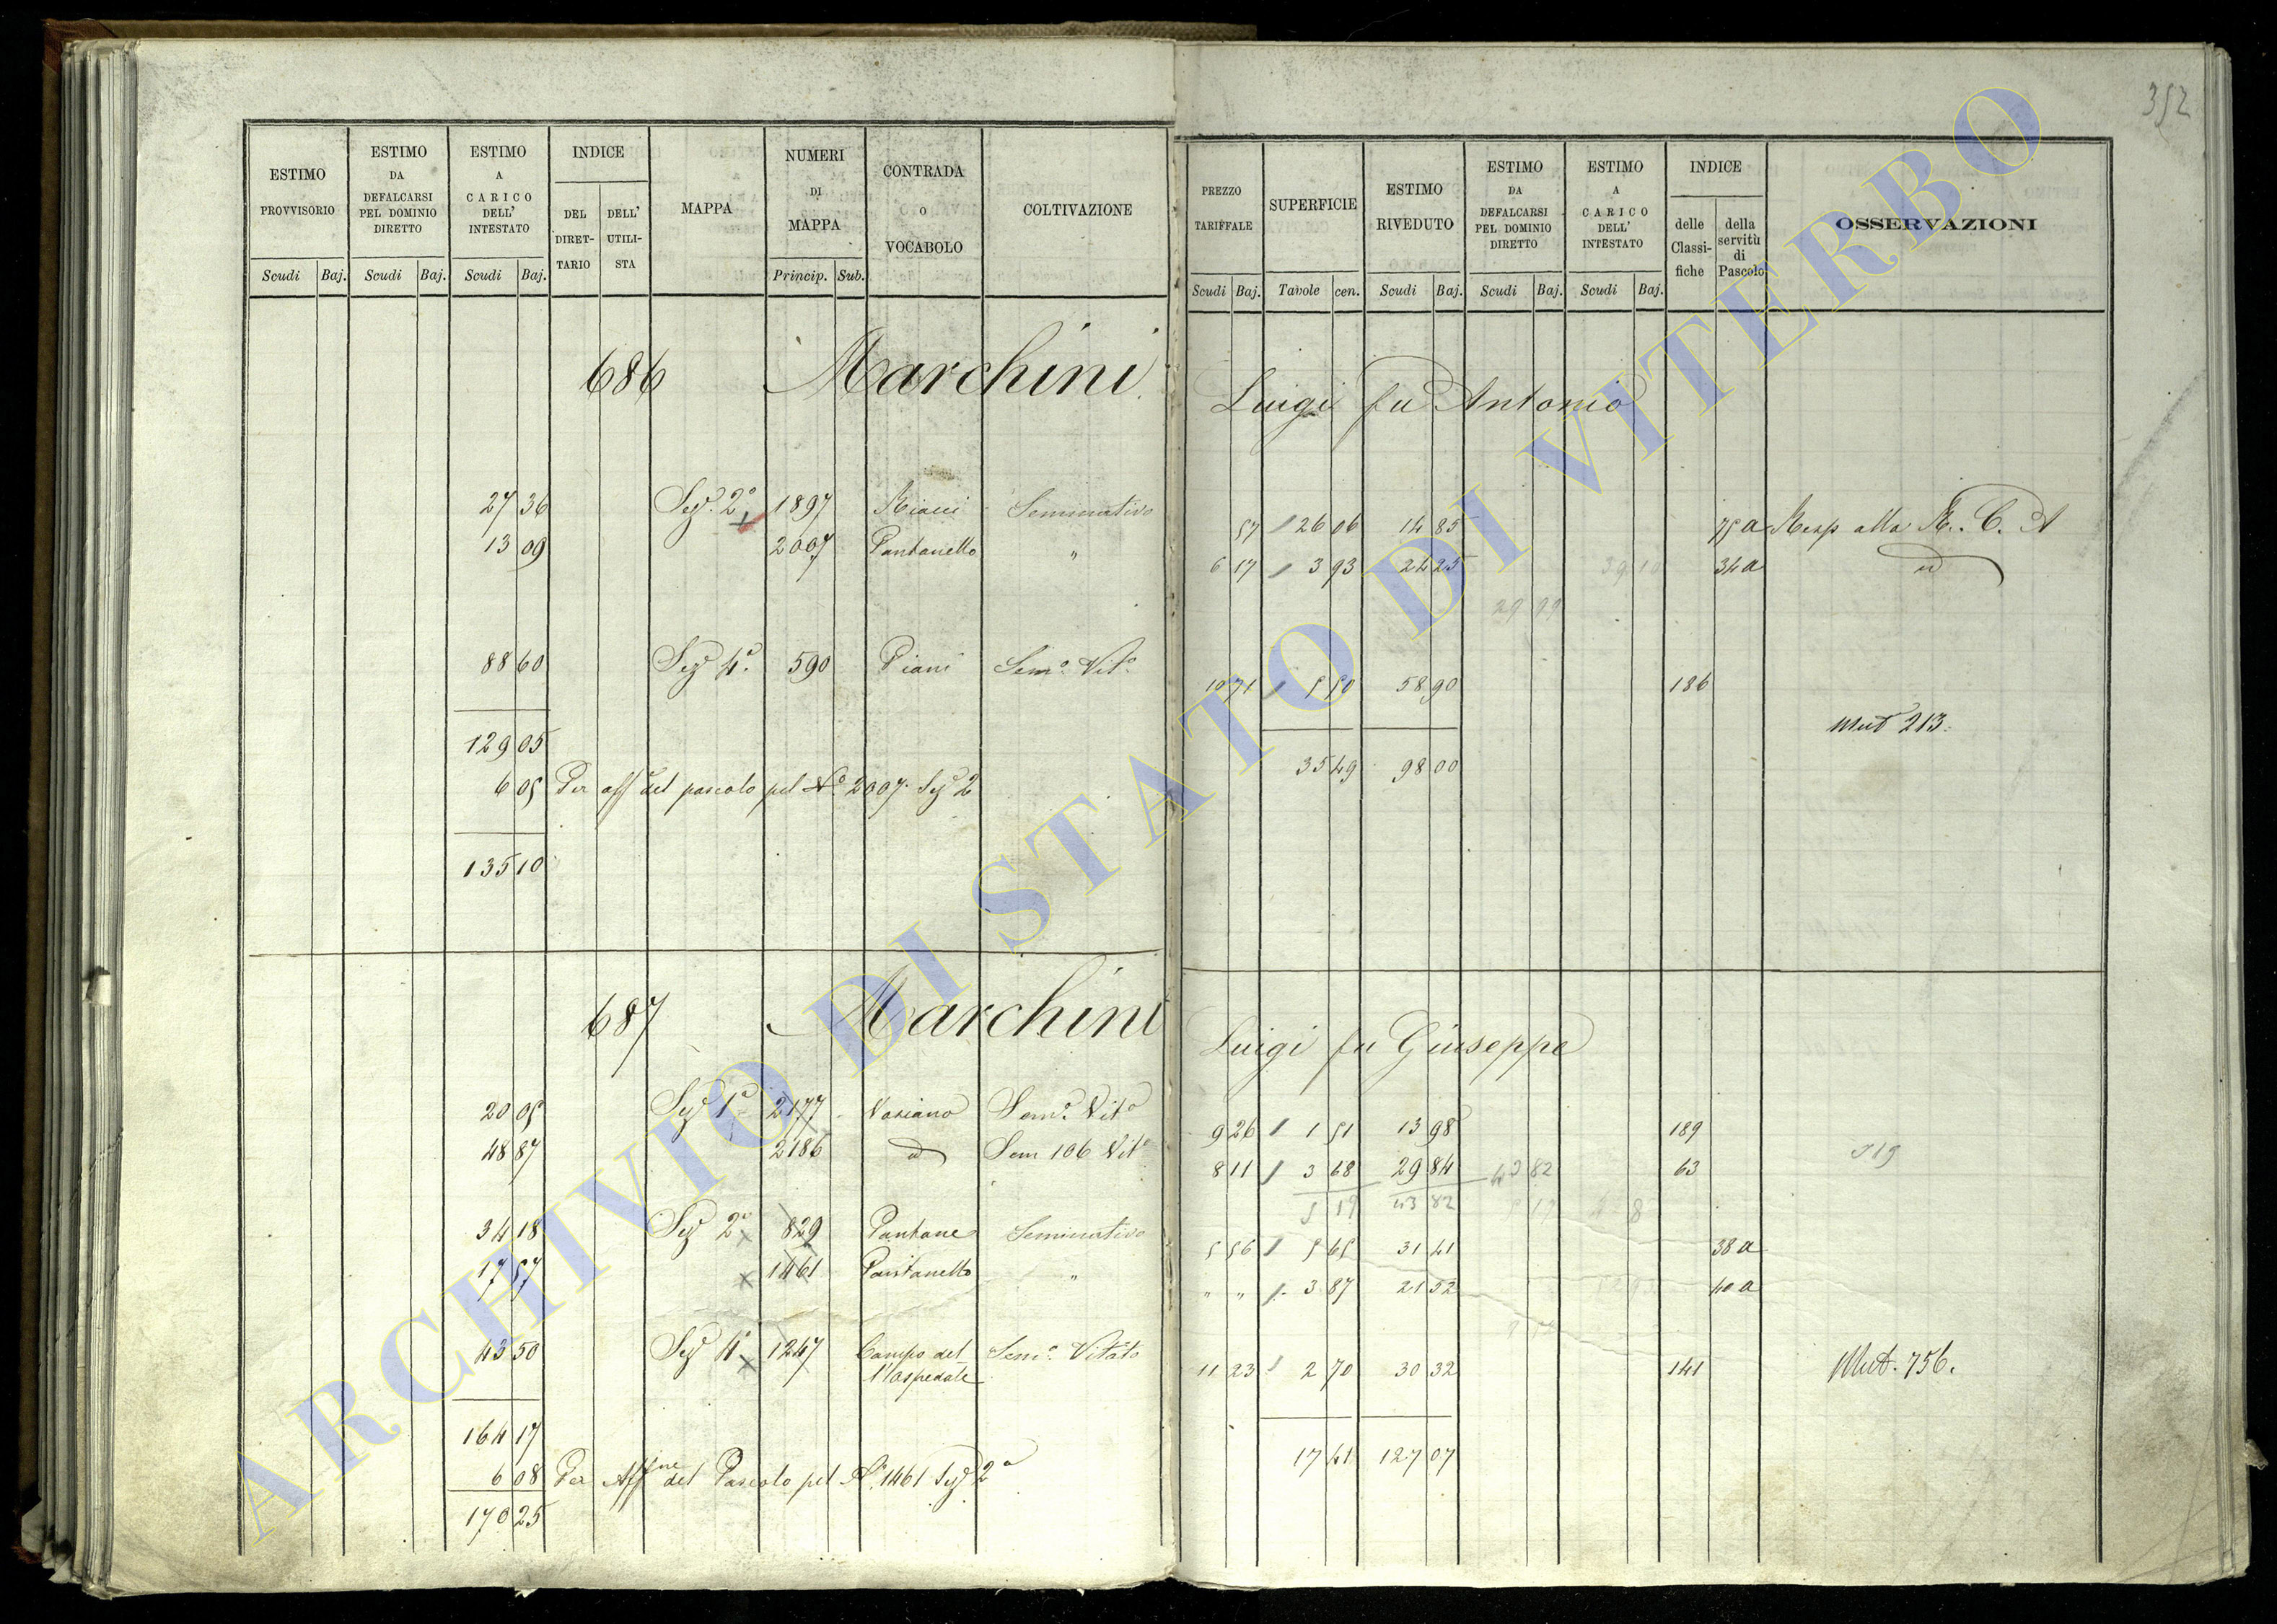 352
ESTIMO PROVVISORIO
ESTIMO DA DEFALCARSI PEL DOMINIO DIRETTO
ESTIMO A CARICO DELL' INTESTATO
INDICE
DEL DIRET-TARIO
DELL' UTILI-STA
MAPPA
NUMERI DI MAPPA
CONTRADA O VOCABOLO
COLTIVAZIONE
Scudi Baj. Scudi Baj. Scudi Baj. Princip. Sub.
PREZZO TARIFFALE
SUPERFICIE
ESTIMO RIVEDUTO
ESTIMO DA DEFALCARSI PEL DOMINIO DIRETTO
ESTIMO A CARICO DELL' INTESTATO
INDICE
delle Classi-fiche
della servitù di Pascolo
OSSERVAZIONI
Scudi Baj. Tavole cen. Scudi Baj. Scudi Baj. Scudi Baj.
686 Marchini Luigi fu Antonio
27 36 Sez. 2a 1897 Seminativo 57 26 06 14 85 75 a Resp alla R. C. A
13 09 2007 Pantanello " 6 17 3 93 24 25 39 10 34 a id
29 99
88 60 Sez 4a 590 Piani Semo. Vito. 10 71 5 50 58 90 186
Mut 213.
129 05 35 49 98 00
6 05 Per aff del pascolo pel No. 2007 Sez 2
135 10
687 Marchini Luigi fu Giuseppe
20 05 Sez 1a 2177 Semo. Vito 9 26 1 51 13 98 189
48 87 2186 id Sem 106 Vit 8 11 3 68 29 84 43 82 63 519
5 19 43 82
34 18 Sez 2a 829 Pantane Seminativo 5 56 5 65 31 41 38 a
17 57 1461 Pantanello " " " 3 87 21 52 40 a
43 50 Sez 4a 1247 Campo del l'Ospedale Semo. Vitato 11 23 2 70 30 32 141 Mut. 756.
164 17 17 41 127 07
6 08 Per Affne del Pascolo pel No. 1461 Sez 2a
170 25
ARCHIVIO DI STATO DI VITERBO